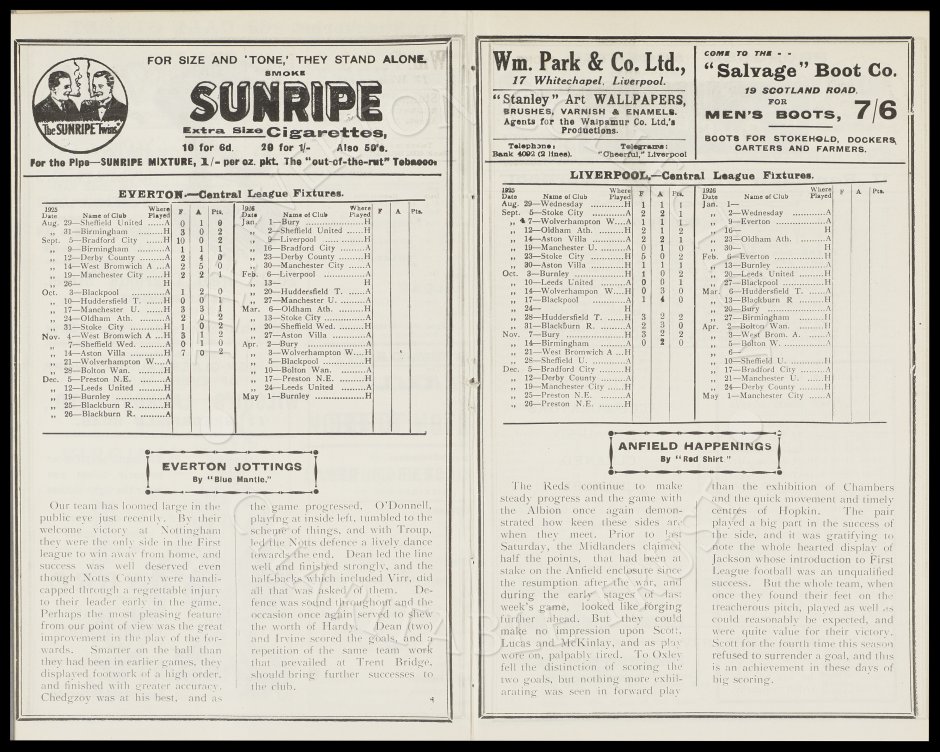 FOR SIZE AND 'TONE,' THEY STAND ALONE.
SMOKE
SUNRIPE
Extra Size Cigarettes,
10 for 6d. 20 for 1/- Also 50's.
The "SUNRIPE Twins"
For the Pipe—SUNRIPE MIXTURE, 1/- per oz. pkt. The "out-of-the-rut" Tobacco.
EVERTON.—Central League Fixtures.
1925 Date Name of Club Where Played F A Pts.
Aug. 29—Sheffield United ......A 0 1 0
„ 31—Birmingham ............H 3 0 2
Sept. 5—Bradford City .........H 10 0 2
„ 9—Birmingham ............A 1 1 1
„ 12—Derby County .........A 2 4 0
„ 14—West Bromwich A ...A 2 5 0
„ 19—Manchester City ......H 2 2 1
„ 26—
Oct. 3—Blackpool ...............A 1 2 0
„ 10—Huddersfield T. ......H 0 0 1
„ 17—Manchester U. .........H 3 3 1
„ 24—Oldham Ath. ............A 2 0 2
„ 31—Stoke City ...............H 1 0 2
Nov. 4—West Bromwich A ...H 3 1 2
„ 7—Sheffield Wed. .........A 0 1 0
„ 14—Aston Villa ...............H 7 0 2
„ 21—Wolverhampton W....A
„ 28—Bolton Wan. ............H
Dec. 5—Preston N.E. ............A
„ 12—Leeds United ............H
„ 19—Burnley ..................A
„ 25—Blackburn R. .........H
„ 26—Blackburn R. .........A
1926 Date Name of Club Where Played F A Pts.
Jan. 1—Bury ......................H
„ 2—Sheffield United ......H
„ 9—Liverpool ...............H
„ 16—Bradford City .........A
„ 23—Derby County .........H
„ 30—Manchester City ......A
Feb. 6—Liverpool ...............A
„ 13—
„ 20—Huddersfield T. ......A
„ 27—Manchester U. .........A
Mar. 6—Oldham Ath. ............H
„ 13—Stoke City ...............A
„ 20—Sheffield Wed. .........H
„ 27—Aston Villa ............A
Apr. 2—Bury ......................A
„ 3—Wolverhampton W....H
„ 5—Blackpool ...............H
„ 10—Bolton Wan. ............A
„ 17—Preston N.E. ............H
„ 24—Leeds United ............A
May 1—Burnley ..................H
EVERTON JOTTINGS
By "Blue Mantle."
Our team has loomed large in the
public eye just recently. By their
welcome victory at Nottingham
they were the only side in the First
league to win away from home, and
success was well deserved even
though Notts County were handi-
capped through a regrettable injury
to their leader early in the game.
Perhaps the most pleasing feature
from our point of view was the great
improvement in the play of the for-
wards. Smarter on the ball than
they had been in earlier games, they
displayed footwork of a high order,
and finished with greater accuracy.
Chedgzoy was at his best, and as
the game progressed, O'Donnell,
playing at inside left, tumbled to the
scheme of things, and with Troup,
led the Notts defence a lively dance
towards the end. Dean led the line
well and finished strongly, and the
half-backs which included Virr, did
all that was asked of them. De-
fence was sound throughout and the
occasion once again served to shew
the worth of Hardy. Dean (two)
and Irvine scored the goals, and a
repetition of the same team work
that prevailed at Trent Bridge,
should bring further successes to
the club.
4
Wm. Park & Co. Ltd.,
17 Whitechapel, Liverpool.
"Stanley" Art WALLPAPERS,
BRUSHES, VARNISH & ENAMELS.
Agents for the Walpamur Co. Ltd.'s
Productions.
Telephone: Bank 4092 (2 lines).
Telegrams: "Cheerful," Liverpool
COME TO THE - -
"Salvage" Boot Co.
19 SCOTLAND ROAD.
FOR
MEN'S BOOTS, 7/6
BOOTS FOR STOKEHOLD, DOCKERS,
CARTERS AND FARMERS.
LIVERPOOL.—Central League Fixtures.
1925 Date Name of Club Where Played F A Pts.
Aug. 29—Wednesday ...............H 1 1 1
Sept. 5—Stoke City ...............A 2 2 1
„ 7—Wolverhampton W....A 1 1 1
„ 12—Oldham Ath. ............H 2 1 2
„ 14—Aston Villa ...............A 2 2 1
„ 19—Manchester U. .........A 0 1 0
„ 23—Stoke City ...............H 5 0 2
„ 30—Aston Villa ...............H 1 1 1
Oct. 3—Burnley ..................H 1 0 2
„ 10—Leeds United ............A 0 0 1
„ 14—Wolverhampton W....H 0 3 0
„ 17—Blackpool ...............A 1 4 0
„ 24—
„ 28—Huddersfield T. ......H 3 2 2
„ 31—Blackburn R. .........A 2 3 0
Nov. 7—Bury ......................H 3 2 2
„ 14—Birmingham ............A 0 2 0
„ 21—West Bromwich A ...H
„ 28—Sheffield U. ............A
Dec. 5—Bradford City .........H
„ 12—Derby County .........A
„ 19—Manchester City ......H
„ 25—Preston N.E. ............A
„ 26—Preston N.E. ............H
1926 Date Name of Club Where Played F A Pts.
Jan. 1—
„ 2—Wednesday ...............A
„ 9—Everton ..................A
„ 16—
„ 23—Oldham Ath. ............A
„ 30—
Feb. 6—Everton ..................H
„ 13—Burnley ..................A
„ 20—Leeds United ............H
„ 27—Blackpool ...............H
Mar. 6—Huddersfield T. ......A
„ 13—Blackburn R .........H
„ 20—Bury ......................A
„ 27—Birmingham ............H
Apr. 2—Bolton Wan. ............H
„ 3—West Brom. A.
„ 5—Bolton W. ...............A
„ 6—
„ 10—Sheffield U. ............H
„ 17—Bradford City .........A
„ 21—Manchester U. .........H
„ 24—Derby County .........H
May 1—Manchester City ......A
ANFIELD HAPPENINGS
By "Red Shirt"
The Reds continue to make
steady progress and the game with
the Albion once again demon-
strated how keen these sides are
when they meet. Prior to last
Saturday, the Midlanders claimed
half the points, that had been at
stake on the Anfield enclosure since
the resumption after the war, and
during the early stages of last
week's game, looked like forging
further ahead. But they could
make no impression upon Scott,
Lucas and McKinlay, and as play
wore on, palpably tired. To Oxley
fell the distinction of scoring the
two goals, but nothing more exhil-
arating was seen in forward play
than the exhibition of Chambers
and the quick movement and timely
centres of Hopkin. The pair
played a big part in the success of
the side, and it was gratifying to
note the whole hearted display of
Jackson whose introduction to First
League football was an unqualified
success. But the whole team, when
once they found their feet on the
treacherous pitch, played as well as
could reasonably be expected, and
were quite value for their victory.
Scott for the fourth time this season
refused to surrender a goal, and this
is an achievement in these days of
big scoring.